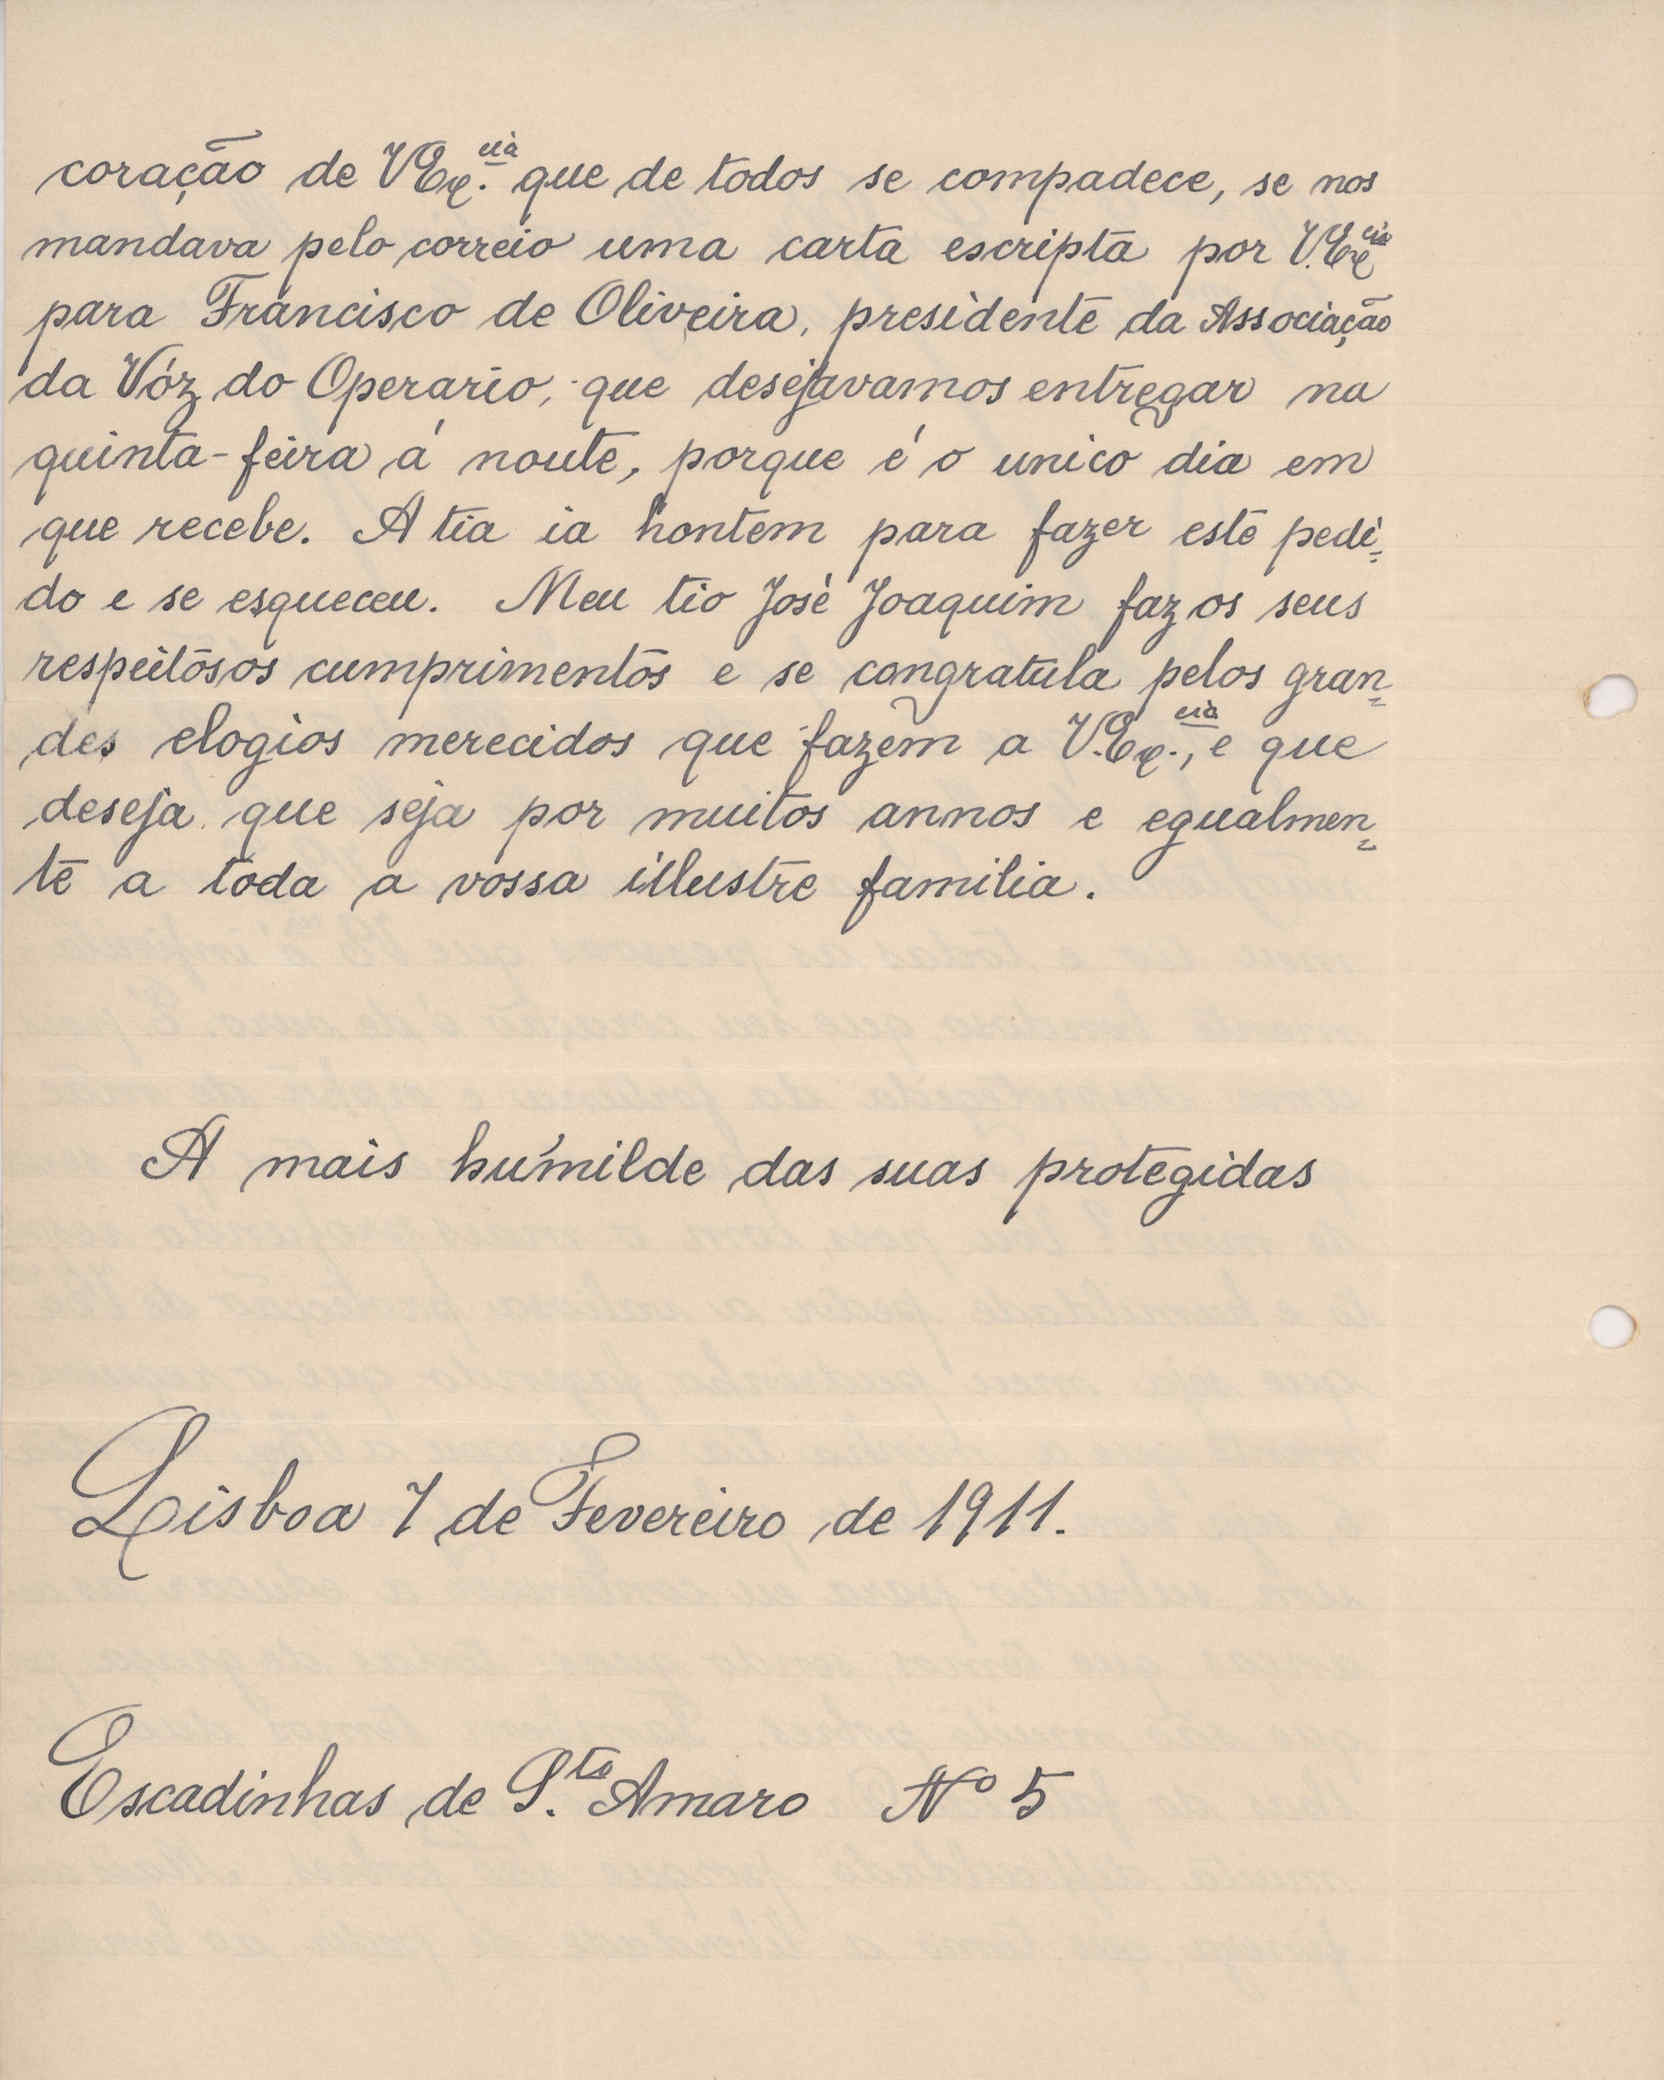 coração de VEx.cia que de todos se compadece, se nos
mandava pelo correio uma carta escripta por V.Excia
para Francisco de Oliveira, presidente da Associação
da Vóz do Operario, que desejavamos entregar na
quinta-feira á noute, porque é o unico dia em
que recebe. A tia ia hontem para fazer este pedi=
do e se esqueceu. Meu tio José Joaquim faz os seus
respeitósos cumprimentos e se congratula pelos gran=
des elogios merecidos que fazem a V.Ex.cia, e que
deseja que seja por muitos annos e egualmen=
te a toda a vossa illustre familia.
A mais humilde das suas protegidas
Lisboa 7 de Fevereiro de 1911.
Escadinhas de S.to Amaro Nº 5